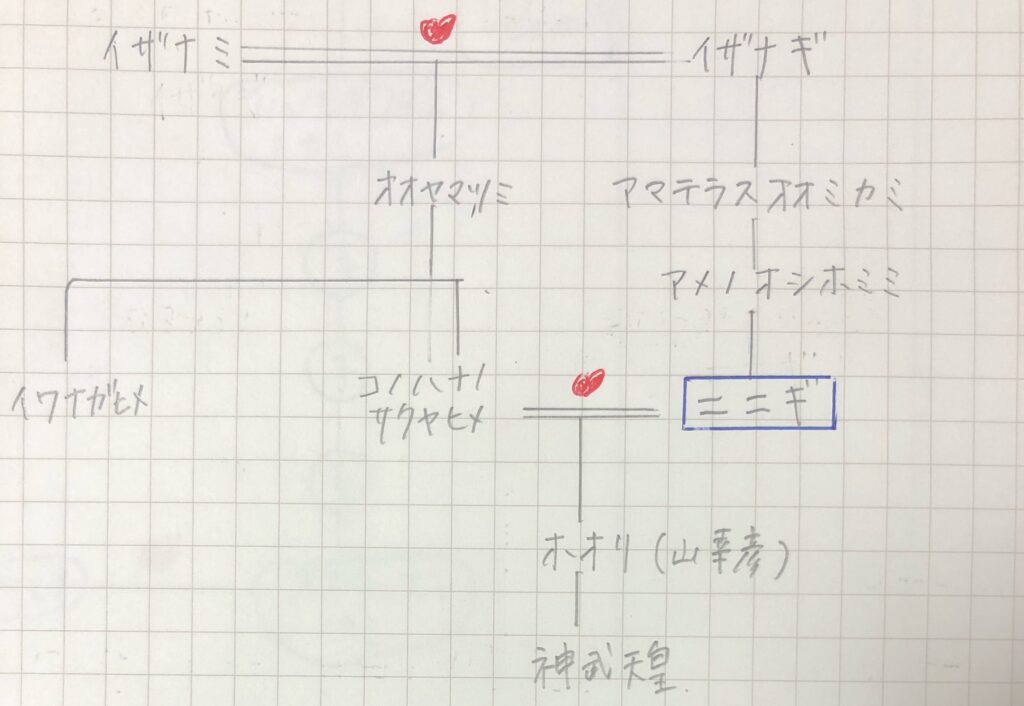 イザナミ
イザナギ
オオヤマツミ
アマテラスオオミカミ
アメノオシホミミ
イワナガヒメ
コノハナノ
サクヤヒメ
ニニギ
ホオリ(山幸彦)
神武天皇